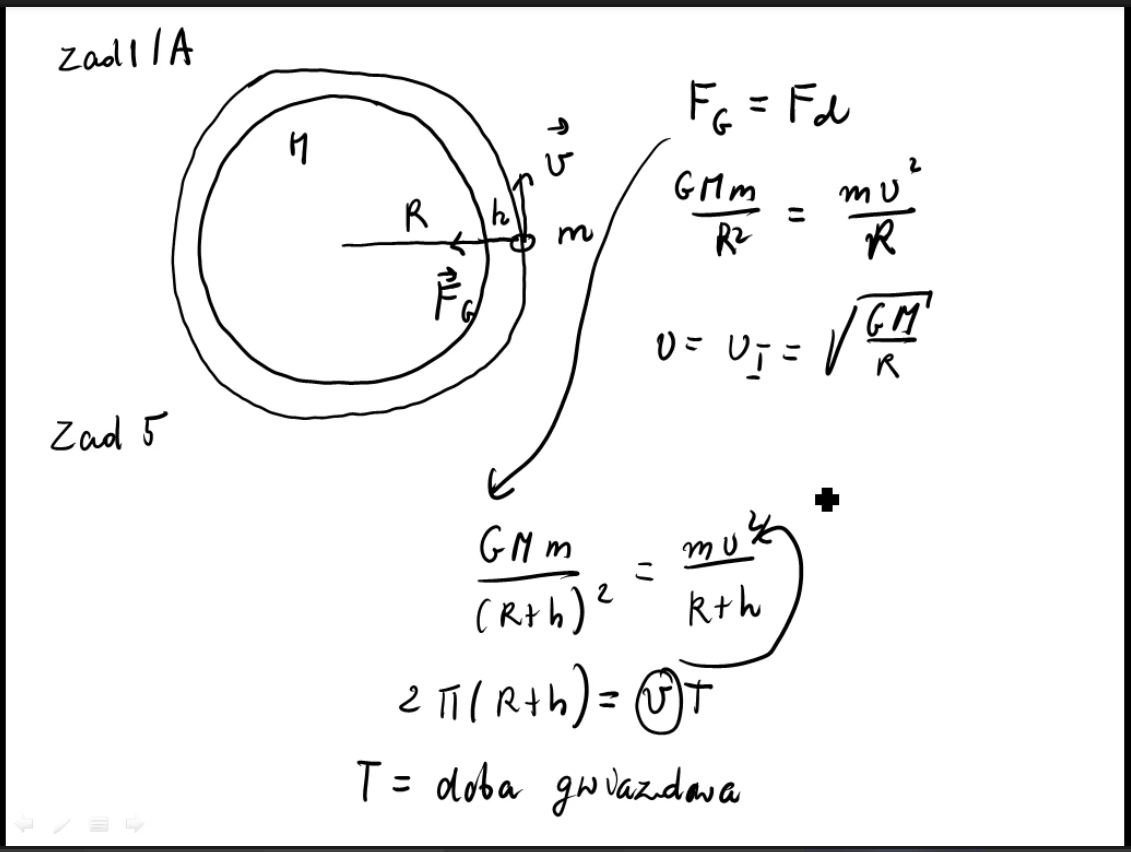 Zad 1/A
M
R
h
v⃗
m
F⃗_G
F_G = F_d
GMm/R² = mv²/R
v = v_I = √(GM/R)
Zad 5
GMm/(R+h)² = mv²/R+h
2π(R+h) = vT
T = doba gwiazdowa